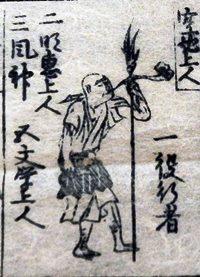 空也上人
一役行者
二明恵上人
三風神 又文学上人